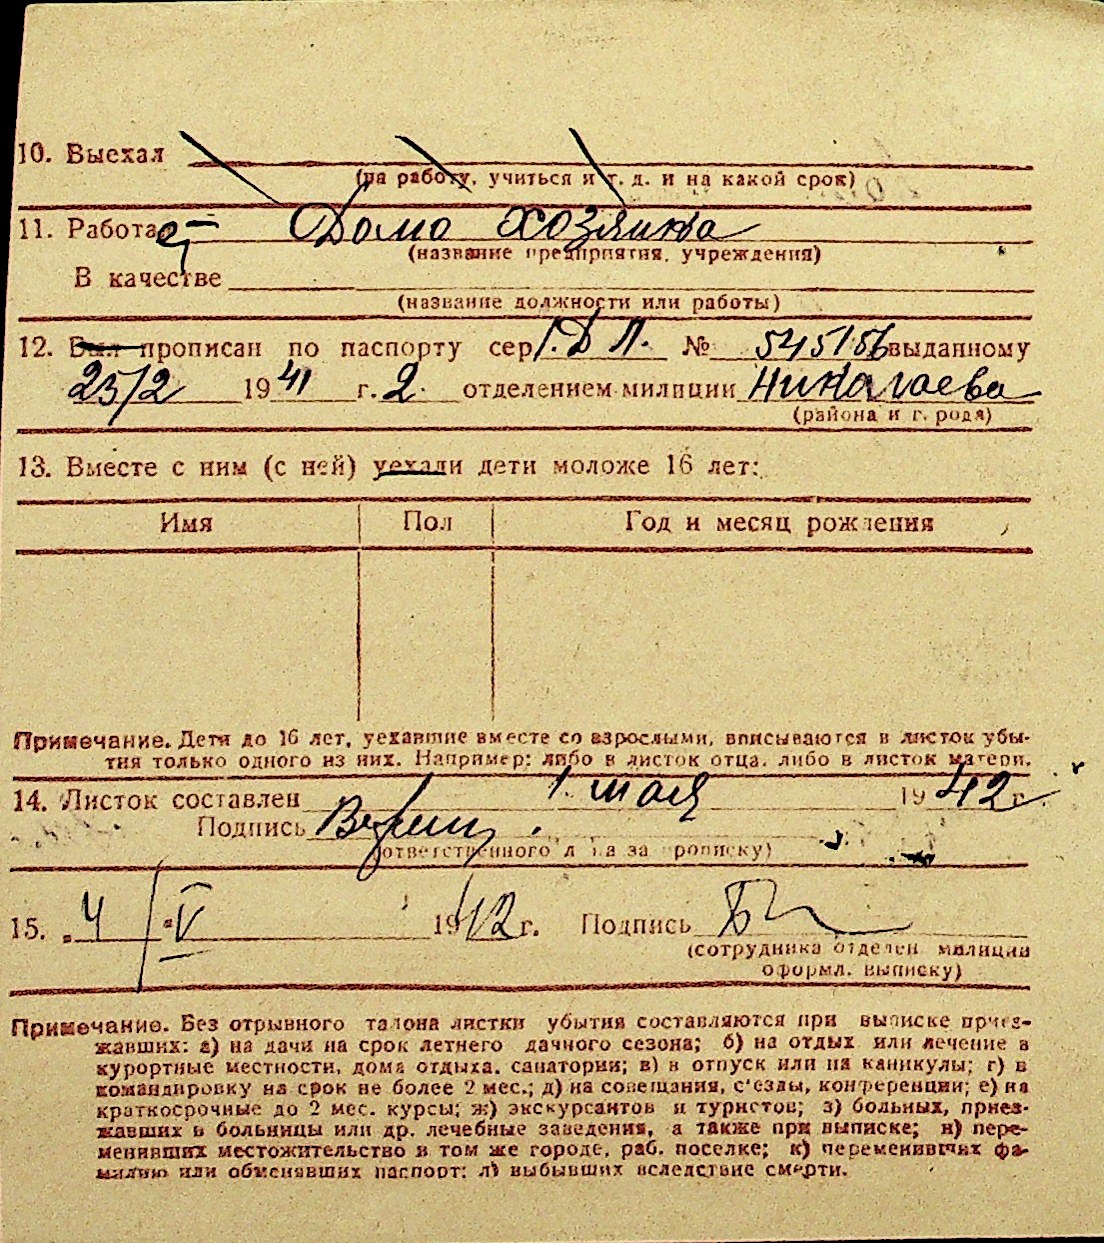 10. Выехал
(на работу, учиться и т. д. и на какой срок)
11. Работает Домо хозяйка
(название предприятия, учреждения)
В качестве
(название должности или работы)
12. Был прописан по паспорту сер. I. Д Л. № 545156 выданному
25/2 1941 г. 2. отделением милиции Николаева
(района и г. рода)
13. Вместе с ним (с ней) уехали дети моложе 16 лет:
Имя Пол Год и месяц рождения
Примечание. Дети до 16 лет, уехавшие вместе со взрослыми, вписываются в листок убы-
тия только одного из них. Например: либо в листок отца, либо в листок матери.
14. Листок составлен 1. мая 1942 г.
Подпись
(ответственного лица за прописку)
15. „4 " V 1942 г. Подпись
(сотрудника отделен милиции
оформл. выписку)
Примечание. Без отрывного талона листки убытия составляются при выписке приез-
жавших: а) на дачи на срок летнего дачного сезона; б) на отдых или лечение в
курортные местности, дома отдыха, санатории; в) в отпуск или на каникулы; г) в
командировку на срок не более 2 мес.; д) на совещания, с'езды, конференции; е) на
краткосрочные до 2 мес. курсы; ж) экскурсантов и туристов; з) больных, приез-
жавших в больницы или др. лечебные заведения, а также при выписке; и) пере-
менивших местожительство в том же городе, раб. поселке; к) переменивших фа-
милию или обменявших паспорт; л) выбывших вследствие смерти.